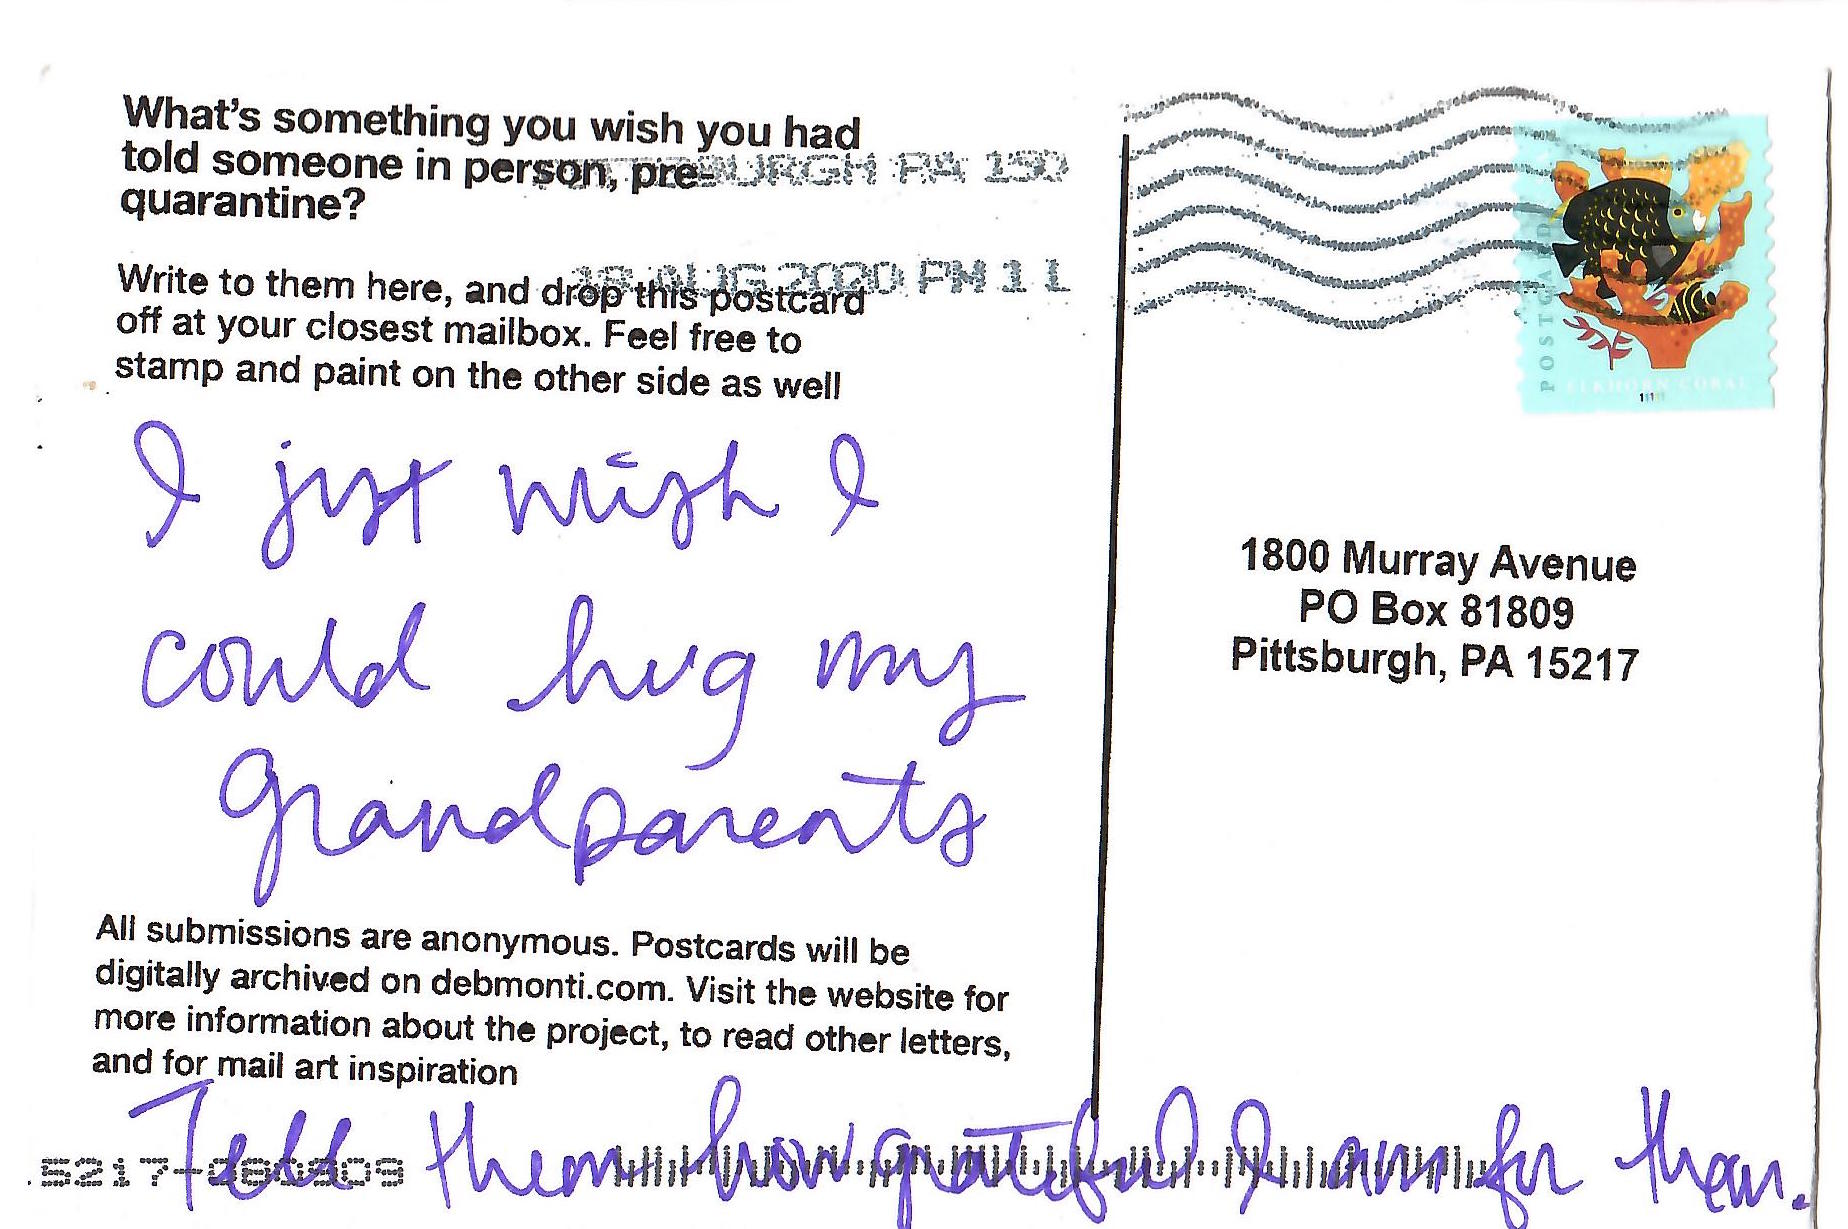 What's something you wish you had
told someone in person, pre-
quarantine?
BURGH PA 150
18 AUG 2020 PM 11
Write to them here, and drop this postcard
off at your closest mailbox. Feel free to
stamp and paint on the other side as well
I just wish I
could hug my
grandparents
All submissions are anonymous. Postcards will be
digitally archived on debmonti.com. Visit the website for
more information about the project, to read other letters,
and for mail art inspiration
Tell them how grateful I am for them.
POSTCARD
ELKHORN CORAL
1800 Murray Avenue
PO Box 81809
Pittsburgh, PA 15217